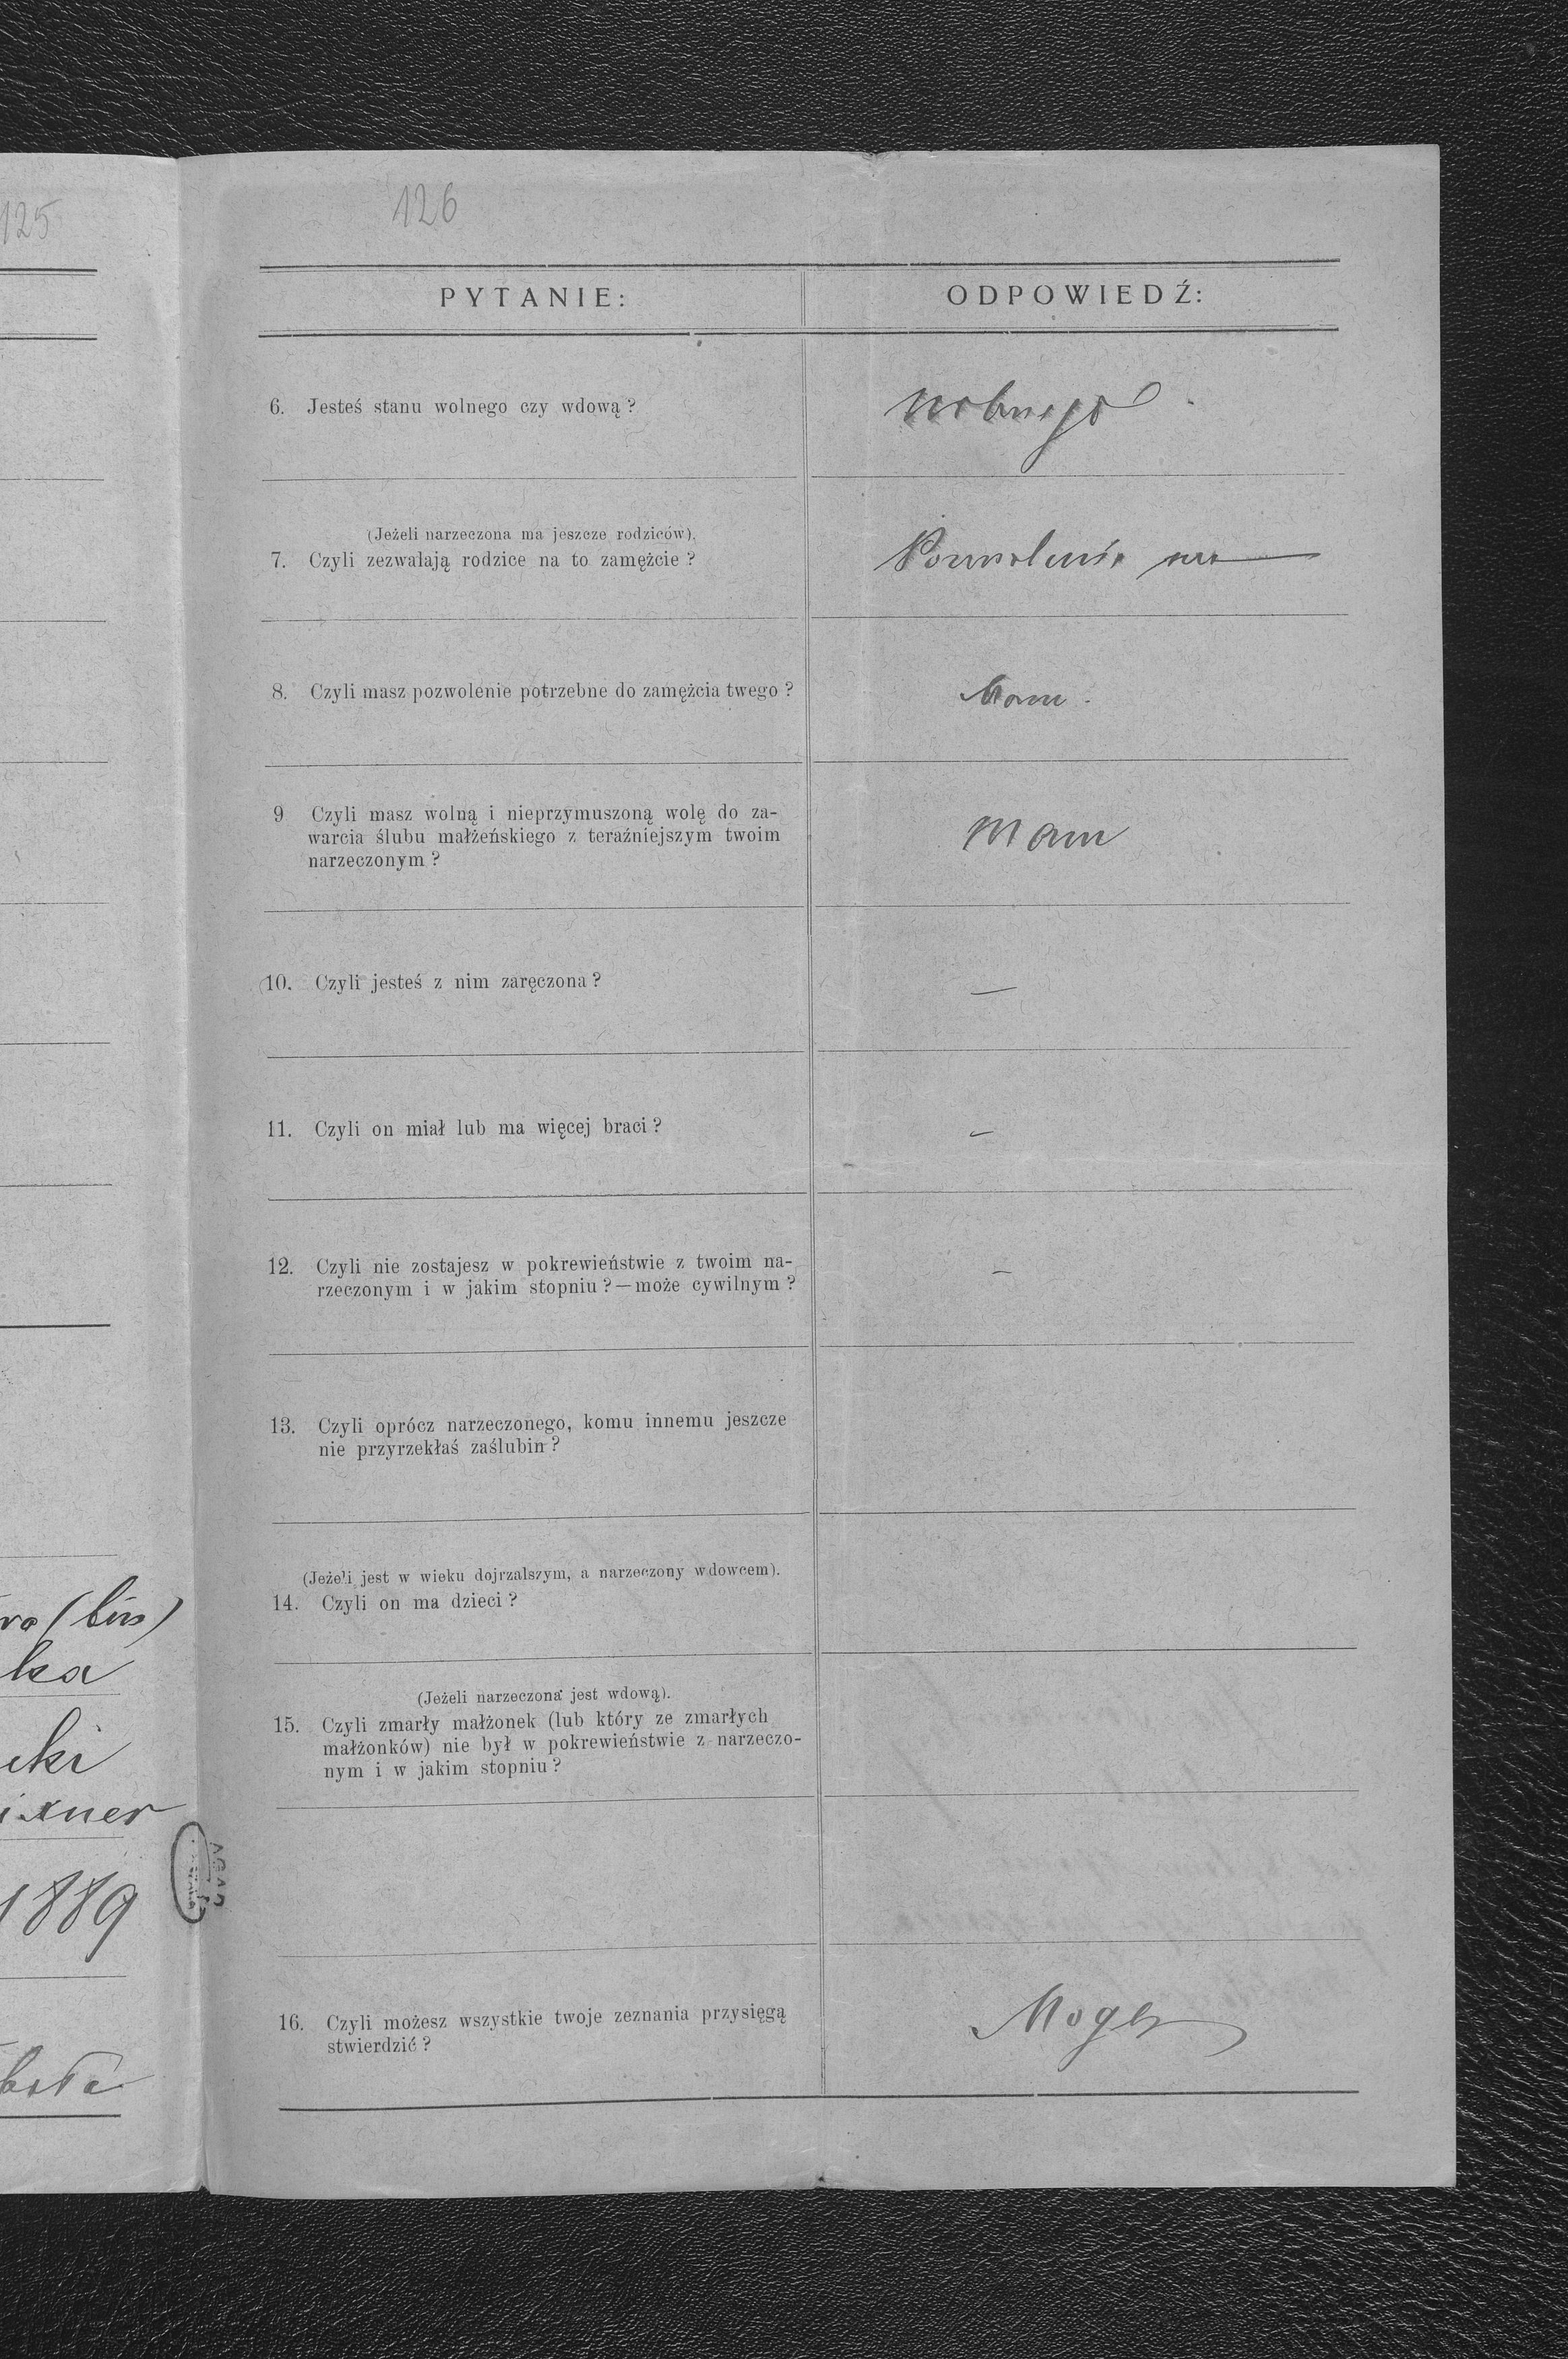 125
126
PYTANIE:
ODPOWIEDŹ:
6. Jesteś stanu wolnego czy wdową?
wolnego
(Jeżeli narzeczona ma jeszcze rodziców).
7. Czyli zezwalają rodzice na to zamęźcie?
Pozwolenie
8. Czyli masz pozwolenie potrzebne do zamęźcia twego?
Mam.
9 Czyli masz wolną i nieprzymuszoną wolę do za-
warcia ślubu małżeńskiego z teraźniejszym twoim
narzeczonym?
Mam
10. Czyli jesteś z nim zaręczona?
—
11. Czyli on miał lub ma więcej braci?
—
12. Czyli nie zostajesz w pokrewieństwie z twoim na-
rzeczonym i w jakim stopniu?—może cywilnym?
—
13. Czyli oprócz narzeczonego, komu innemu jeszcze
nie przyrzekłaś zaślubin?
(Jeżeli jest w wieku dojrzalszym, a narzeczony wdowcem).
14. Czyli on ma dzieci?
(Jeżeli narzeczona jest wdową).
15. Czyli zmarły małżonek (lub który ze zmarłych
małżonków) nie był w pokrewieństwie z narzeczo-
nym i w jakim stopniu?
16. Czyli możesz wszystkie twoje zeznania przysięgą
stwierdzić?
Mogę
ka
cki
ixner
1889
AGAD